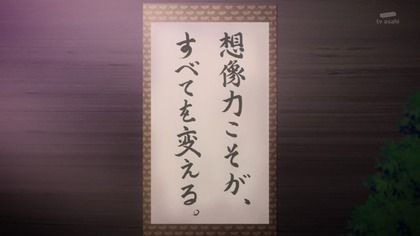 想像力こそが、
すべてを変える。
tv asahi